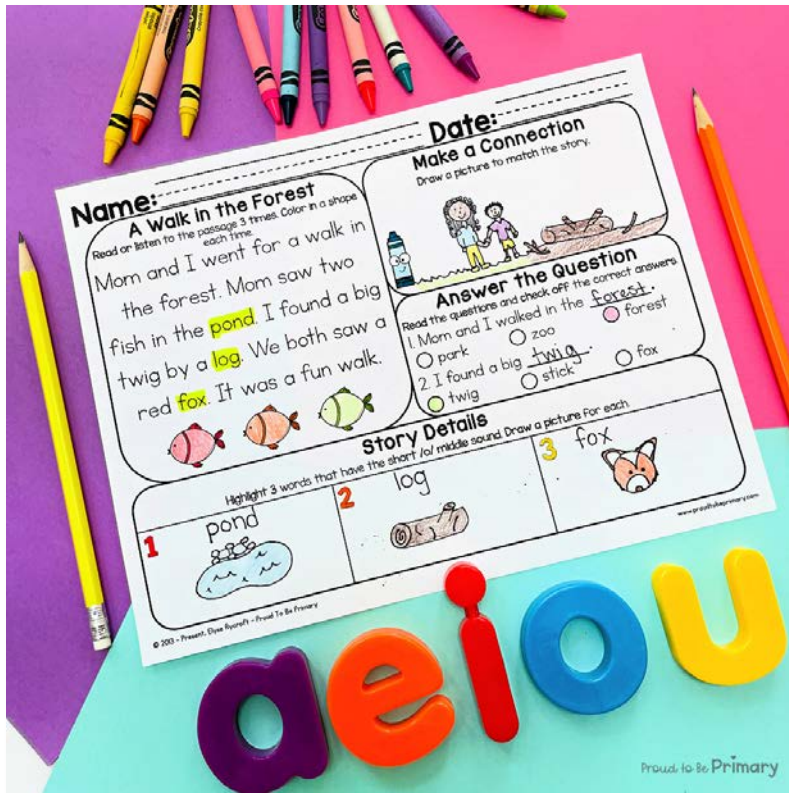 Name:
Date:
A Walk in the Forest
Read or listen to the passage 3 times. Color in a shape
each time.
Mom and I went for a walk in
the forest. Mom saw two
fish in the pond. I found a big
twig by a log. We both saw a
red fox. It was a fun walk.
Make a Connection
Draw a picture to match the story.
Answer the Question
Read the questions and check off the correct answers.
1. Mom and I walked in the forest.
park
zoo
forest
2. I found a big twig.
twig
stick
fox
Story Details
Highlight 3 words that have the short /o/ middle sound. Draw a picture for each.
1
pond
2
log
3
fox
© 2013 - Present, Elyse Rycroft - Proud To Be Primary
www.proudtobeprimary.com
a e i o u
Proud to Be Primary